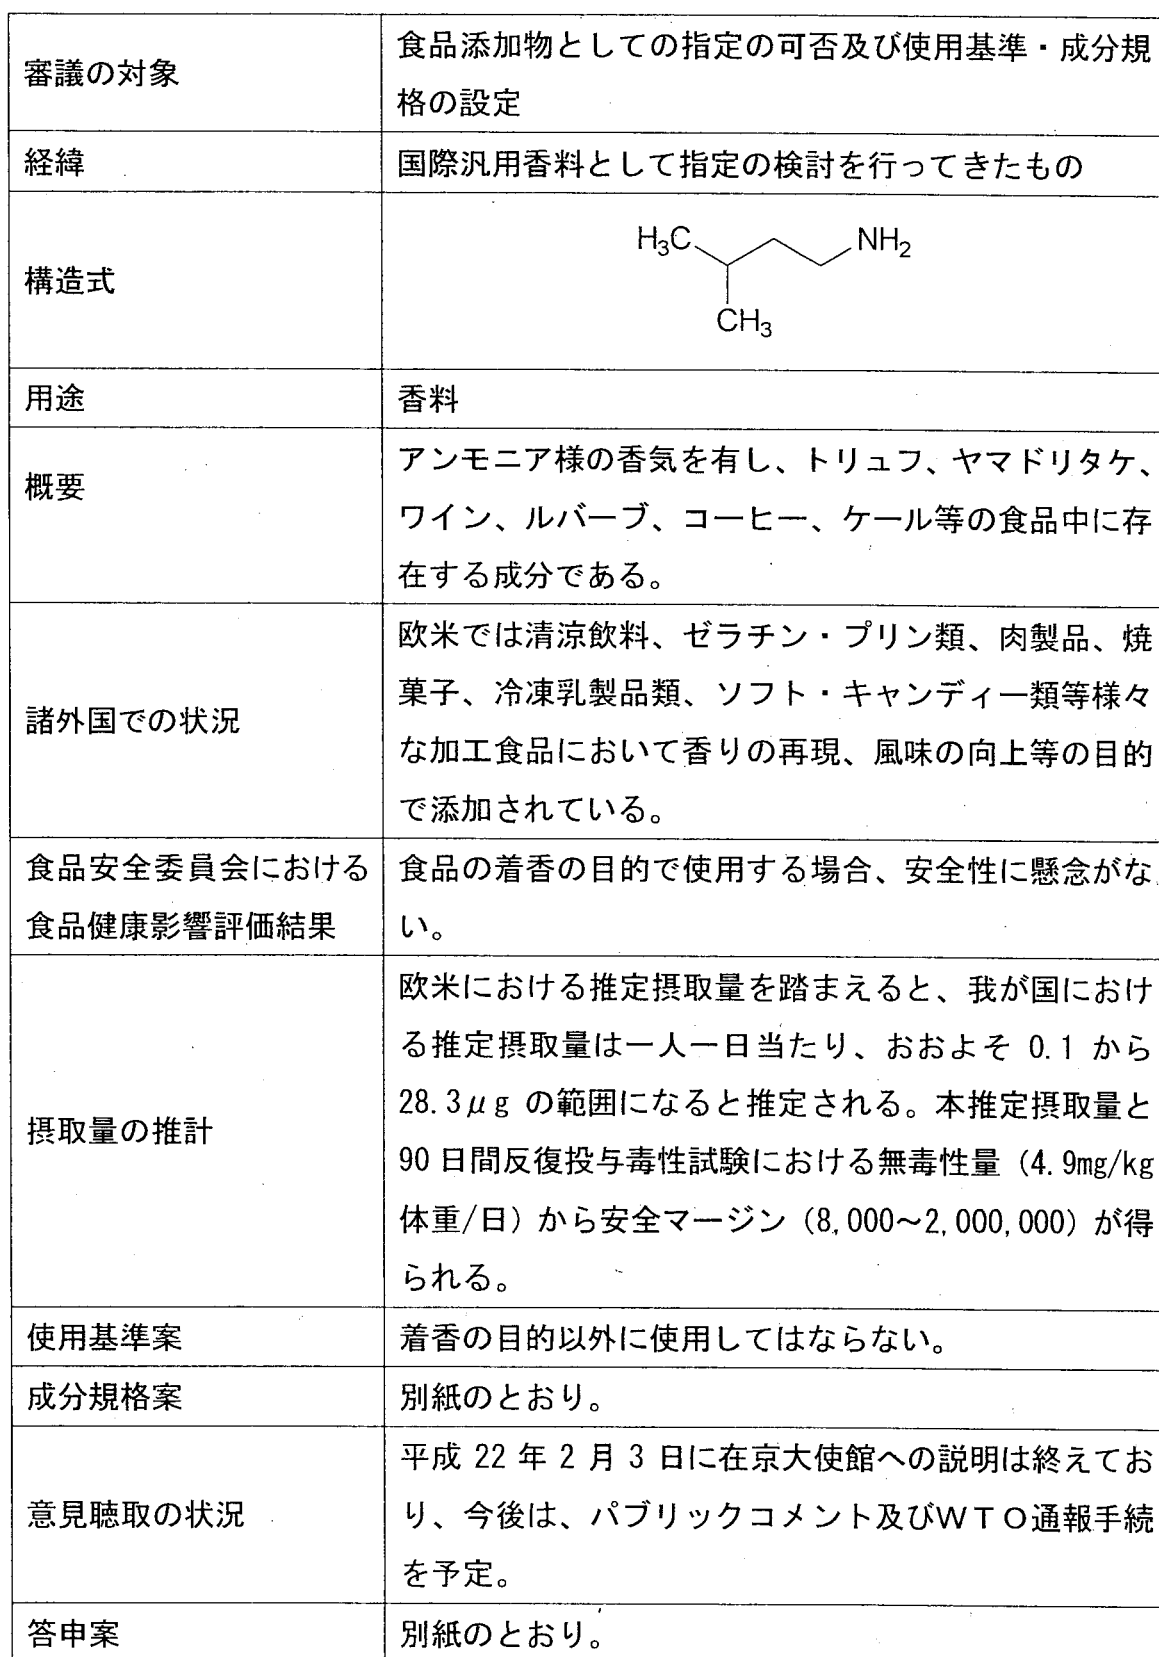 審議の対象
食品添加物としての指定の可否及び使用基準・成分規
格の設定
経緯
国際汎用香料として指定の検討を行ってきたもの
構造式
H3C
NH2
CH3
用途
香料
概要
アンモニア様の香気を有し、トリュフ、ヤマドリタケ、
ワイン、ルバーブ、コーヒー、ケール等の食品中に存
在する成分である。
諸外国での状況
欧米では清涼飲料、ゼラチン・プリン類、肉製品、焼
菓子、冷凍乳製品類、ソフト・キャンディー類等様々
な加工食品において香りの再現、風味の向上等の目的
で添加されている。
食品安全委員会における
食品健康影響評価結果
食品の着香の目的で使用する場合、安全性に懸念がな
い。
摂取量の推計
欧米における推定摂取量を踏まえると、我が国におけ
る推定摂取量は一人一日当たり、おおよそ 0.1 から
28.3μg の範囲になると推定される。本推定摂取量と
90 日間反復投与毒性試験における無毒性量(4.9mg/kg
体重/日)から安全マージン(8,000~2,000,000)が得
られる。
使用基準案
着香の目的以外に使用してはならない。
成分規格案
別紙のとおり。
意見聴取の状況
平成 22 年 2 月 3 日に在京大使館への説明は終えてお
り、今後は、パブリックコメント及びWTO通報手続
を予定。
答申案
別紙のとおり。